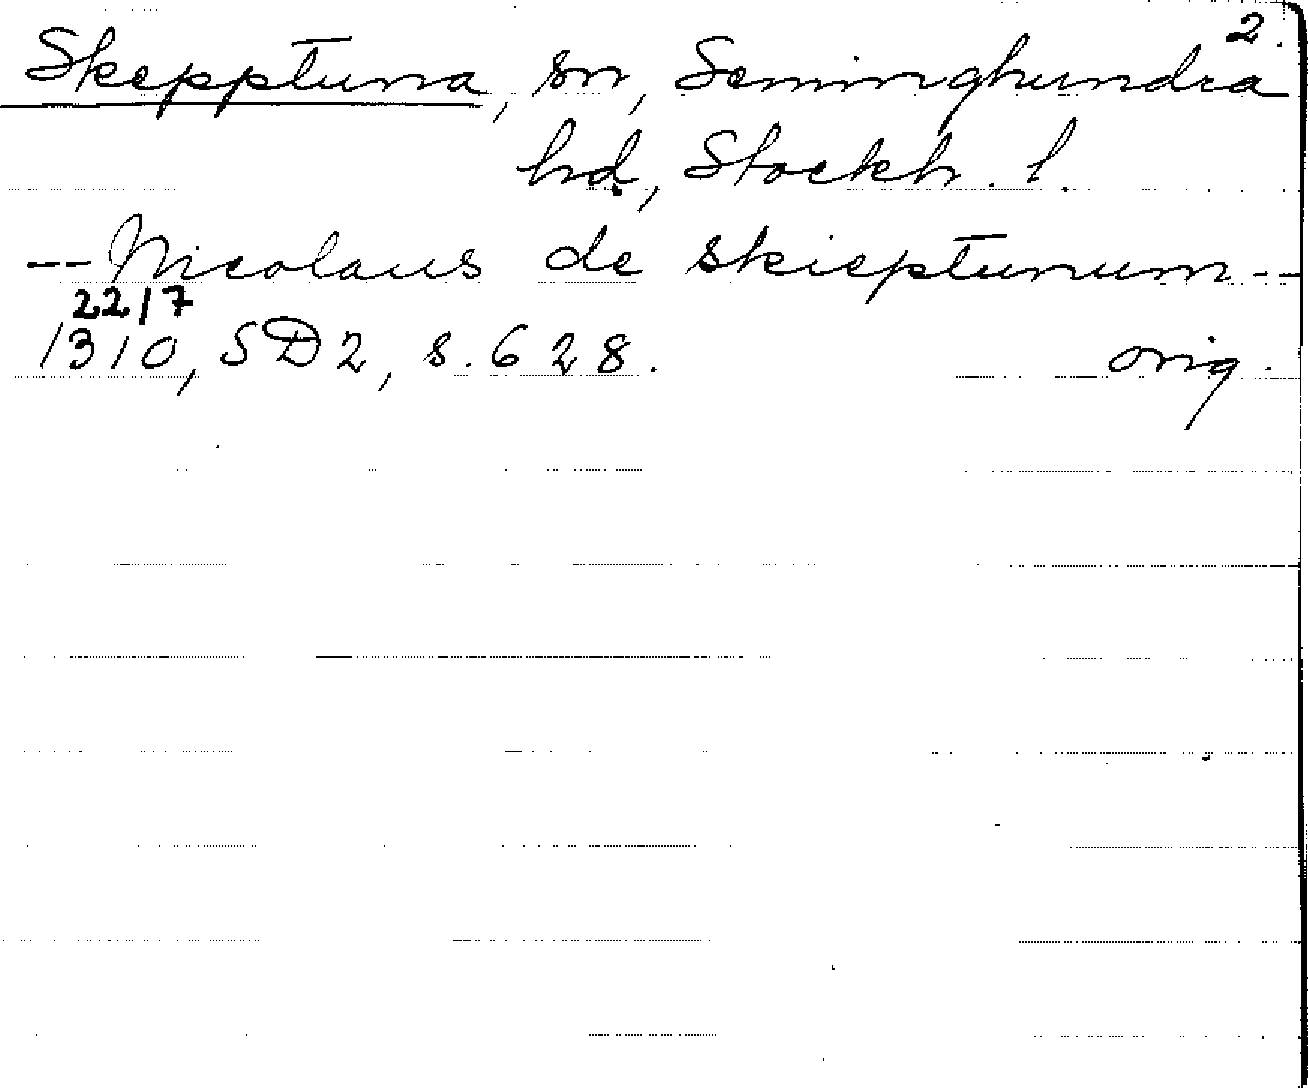 2.
Skepptuna, sn, Seminghundra
hd, Stockh. l.
-- Nicolaus de skieptunum --
22/7
1310, SD2, s. 628. orig.